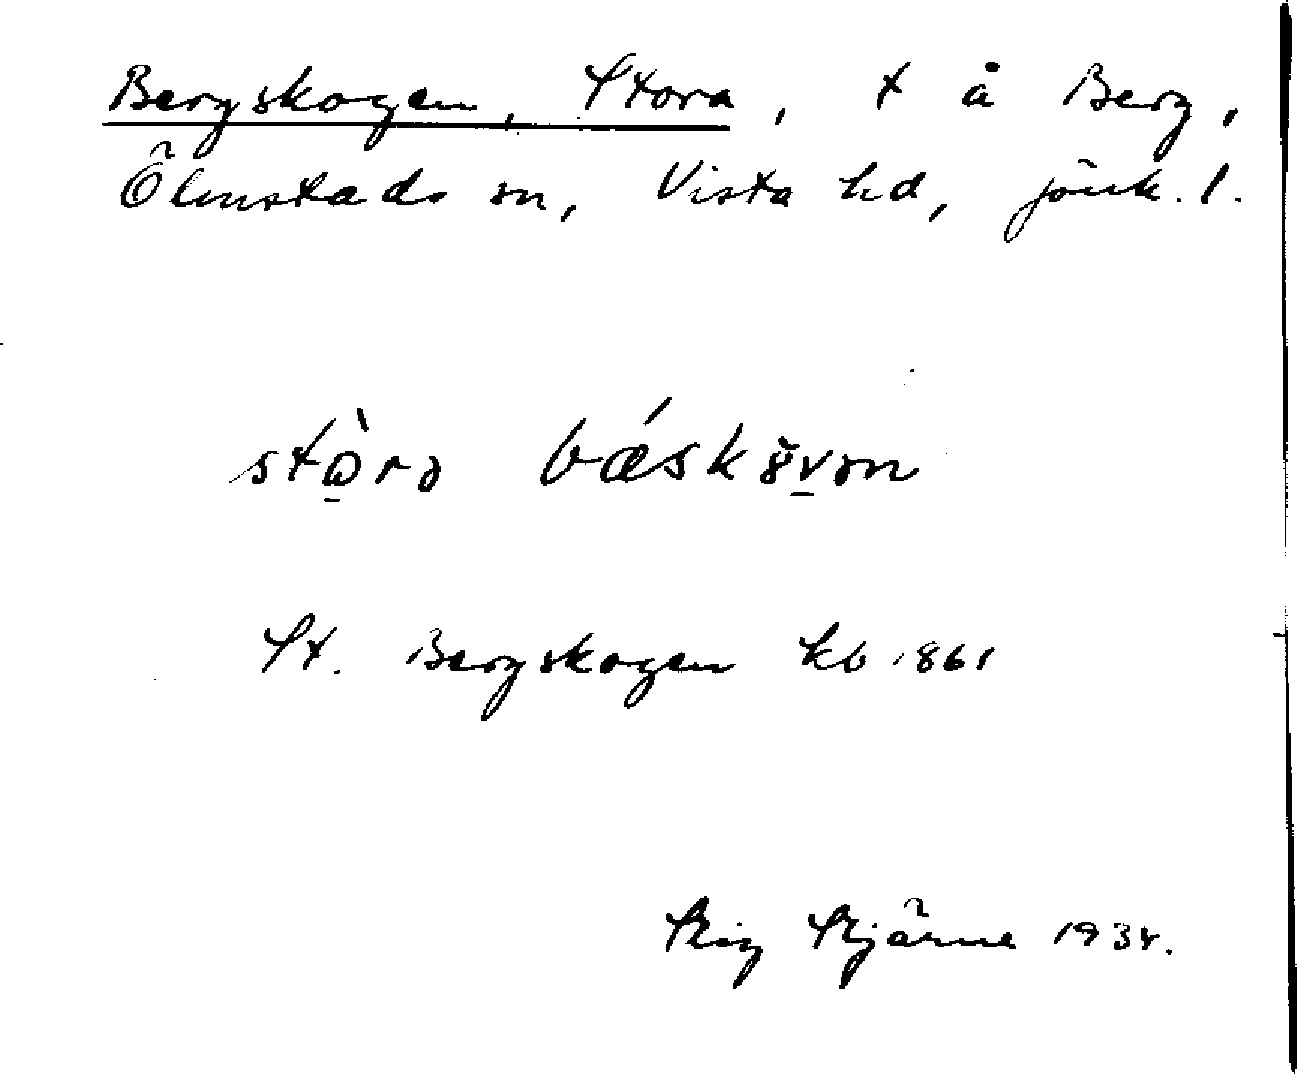 Bergskogen, Stora, t å Berg,
Ölmstads sn, Vista hd, Jönk. l.
stòrə bǽskŏvən
St. Bergskogen kb 1861
Stig Stjärne 1934.